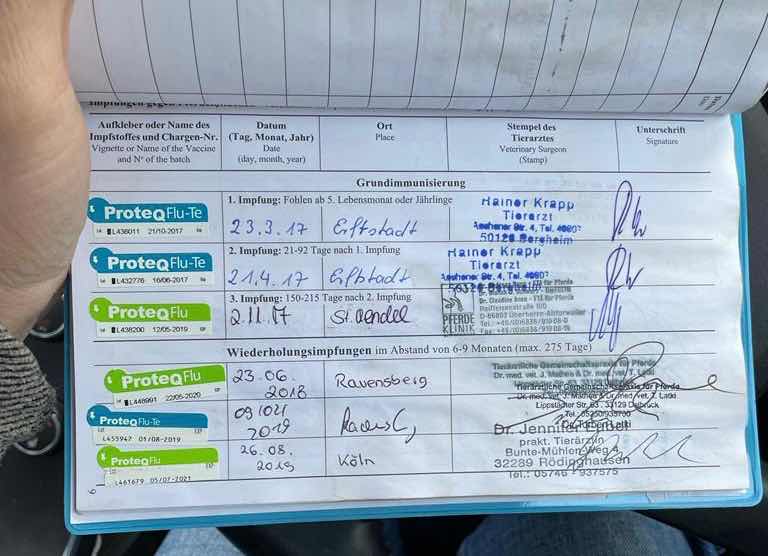 Impfungen gegen
Aufkleber oder Name des Impfstoffes und Chargen-Nr.
Vignette or Name of the Vaccine and N° of the batch
Datum
(Tag, Monat, Jahr)
Date
(day, month, year)
Ort
Place
Stempel des Tierarztes
Veterinary Surgeon
(Stamp)
Unterschrift
Signature
Grundimmunisierung
1. Impfung: Fohlen ab 5. Lebensmonat oder Jährlinge
ProteqFlu-Te
L436011 21/10/2017
23.3.17
Erftstadt
Rainer Krapp
Tierarzt
Aachener Str. 4, Tel.
50126 Bergheim
2. Impfung: 21-92 Tage nach 1. Impfung
ProteqFlu-Te
L432776 16/06/2017
21.4.17
Erftstadt
Rainer Krapp
Tierarzt
Aachener Str. 4, Tel.
3. Impfung: 150-215 Tage nach 2. Impfung
ProteqFlu
L438200 12/05/2019
2.11.17
St. Wendel
PFERDE
KLINIK
Wiederholungsimpfungen im Abstand von 6-9 Monaten (max. 275 Tage)
ProteqFlu
L448991 22/05/2020
23.06.
2018
Ravensberg
Tierärztliche Gemeinschaftspraxis für Pferde
Dr. med. vet. J. Mathes & Dr. med. vet. T. Latki
ProteqFlu-Te
L455947 01/08/2019
2019
Tierärztliche Gemeinschaftspraxis für Pferde
Dr. med. vet. J. Mathes & Dr. med. vet. T. Latki
Lippstädter Str. 83 33129 Delbrück
ProteqFlu
L461679 05/07/2021
26.08.
2019
Köln
Dr. Jennifer
prakt. Tierärztin
Bunte-Mühlen-Weg 4
32289 Rödinghausen
Tel.: 05746 - 937575
6